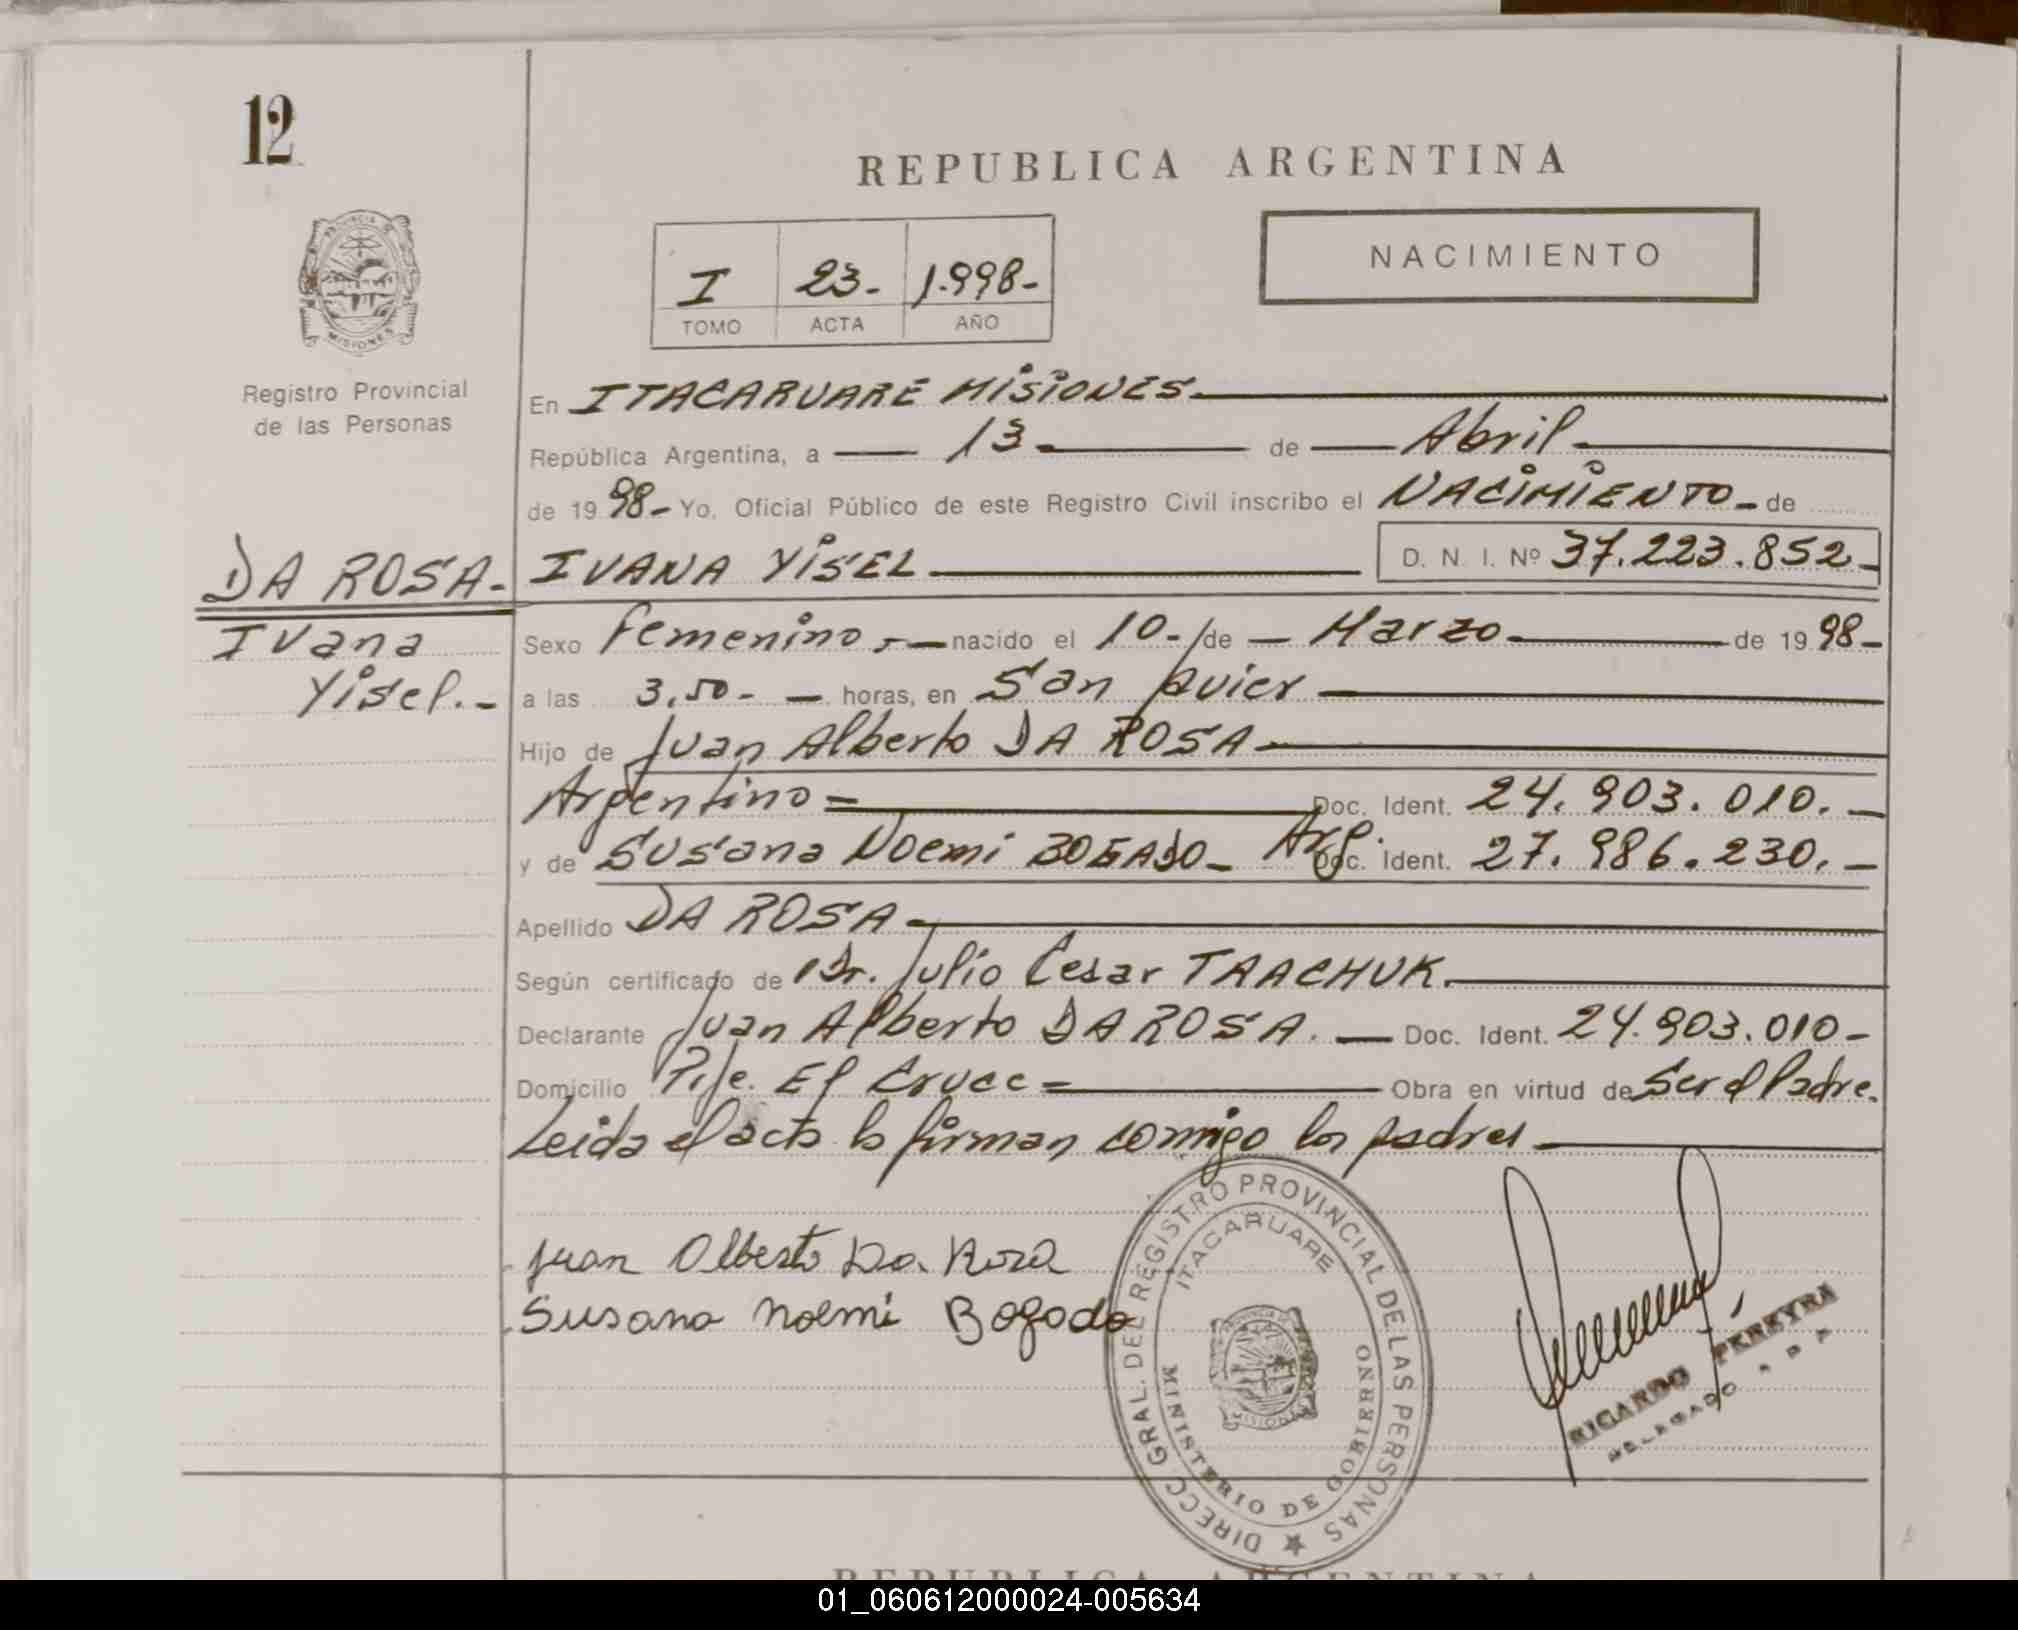 12
REPUBLICA ARGENTINA
NACIMIENTO
I 23- 1.998-
TOMO ACTA AÑO
PROVINCIA
MISIONES
Registro Provincial
de las Personas
En ITACARUARE MISIONES
República Argentina, a 13 de Abril
de 1998- Yo, Oficial Público de este Registro Civil inscribo el NACIMIENTO- de
DA ROSA- IVANA YISEL D. N. I. Nº 37.223.852-
Ivana
Yisel.-
Sexo Femenino, nacido el 10- de Marzo de 1998-
a las 3,50- horas, en San Javier
Hijo de Juan Alberto DA ROSA
Argentino Doc. Ident. 24.903.010.-
y de Susana Noemi BOGADO- Arg. Doc. Ident. 27.986.230.-
Apellido DA ROSA
Según certificado de Dr. Julio Cesar TAACHUK.
Declarante Juan Alberto DA ROSA.- Doc. Ident. 24.903.010-
Domicilio Pje. El Cruce Obra en virtud de Ser el Padre.
Leida el acta la firman conmigo los padres
Juan Alberto Da Rosa
Susana Noemi Bogado
DIRECC GRAL. DEL REGISTRO PROVINCIAL DE LAS PERSONAS
ITACARUARE
MINISTERIO DE GOBIERNO
MISIONES
RICARDO PEREYRA
DELEGADO R P P
REPUBLICA ARGENTINA
01_060612000024-005634